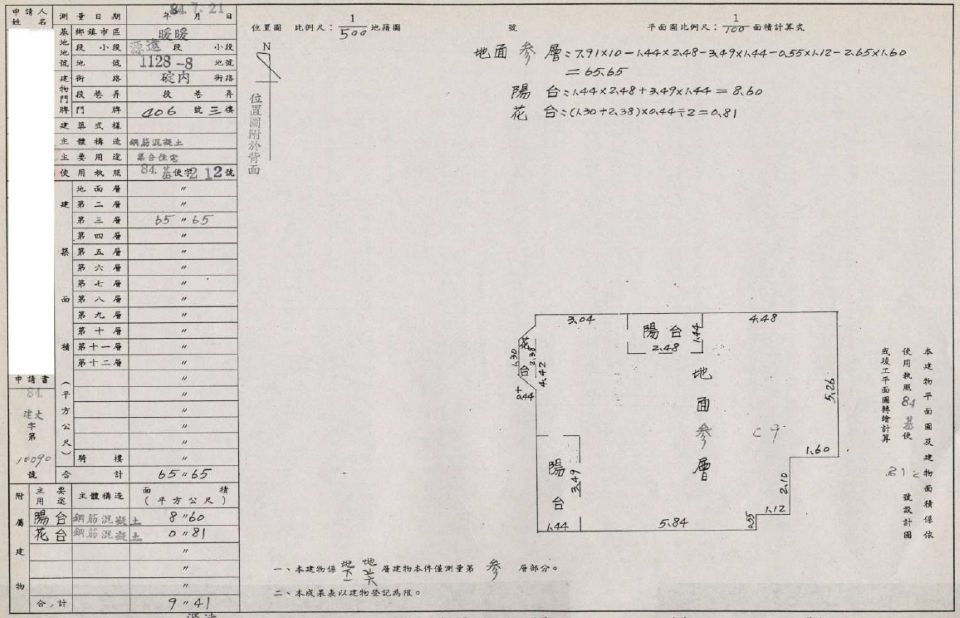 申請人姓名
測量日期 84年7月21日
基地地號
鄉鎮市區 暖暖
段小段 源遠段 小段
地號 1128-8 地號
建物門牌
街路 碇內 街路
段巷弄 段巷弄
門牌 406 號三樓
建築式樣
主體構造 鋼筋混凝土
主要用途 集合住宅
使用執照 84.基使字212號
建築面積(平方公尺)
地面層 〃
第二層 〃
第三層 65〃65
第四層 〃
第五層 〃
第六層 〃
第七層 〃
第八層 〃
第九層 〃
第十層 〃
第十一層 〃
第十二層 〃
〃
〃
〃
〃
〃
騎樓 〃
合計 65〃65
申請書
84.
建丈
字第
10090
號
附屬建物
主要用途 主體構造 面積(平方公尺)
陽台 鋼筋混凝土 8〃60
花台 鋼筋混凝土 0〃81
〃
〃
〃
合計 9〃41
位置圖 比例尺:1/500 地籍圖 號
平面圖比例尺:1/100 面積計算式
N
位置圖附於背面
地面參層:7.91×10-1.44×2.48-3.49×1.44-0.55×1.12-2.65×1.60
=65.65
陽台:1.44×2.48+3.49×1.44=8.60
花台:(1.30+2.38)×0.44÷2=0.81
3.04
陽台
2.48
1.44
4.48
花台
1.30
2.38
0.44
4.42
地面參層
5.26
陽台
3.49
1.44
5.84
0.55
1.12
2.10
1.60
本建物平面圖及建物面積係依
使用執照84基使 212 號設計圖
或竣工平面圖轉繪計算
一、本建物係 層建物本件僅測量第 參 層部分。
二、本成果表以建物登記為限。